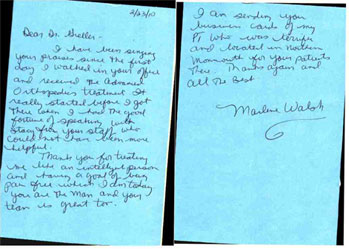 2/23/10
Dear Dr.
I have been singing
your praises since the first
day I walked in your office
and received the Advanced
Orthopedics treatment. It
really started before I got
there when I had the good
fortune of speaking with
from your staff who
could not have been more
helpful.
Thank you for treating
me like an intelligent person
and having a goal of being
pain free which I am today
you are the man and your
team is great too.
I am sending you
business cards of my
PT who was terrific
and located in northern
Monmouth for your patients
there. Thanks again and
all the best
Marlene Walsh